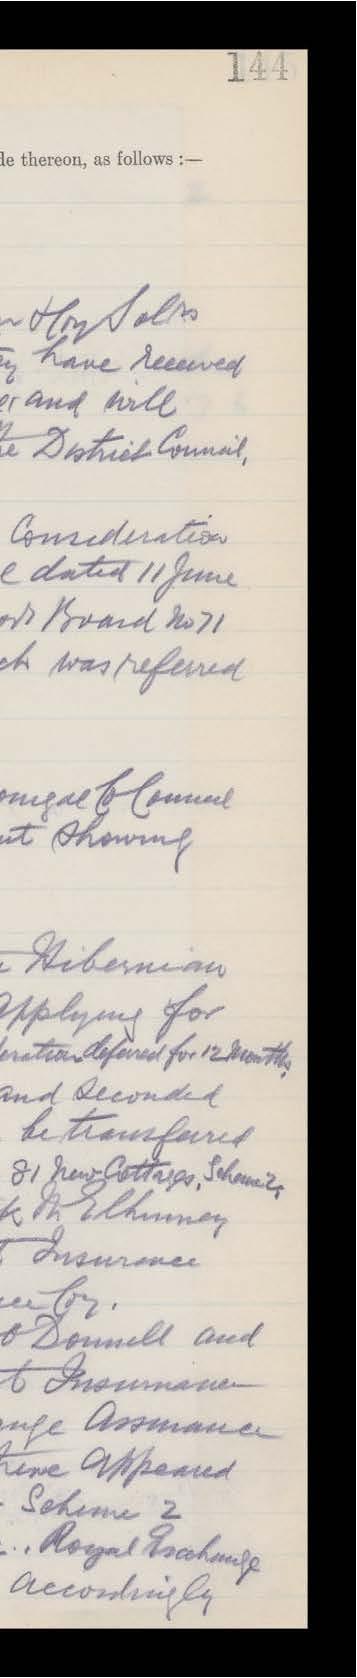 144
de thereon, as follows :—
Hoy Sol
have received
and will
e District Council,
Consideration
e dated 11 June
Board No 71
ch was referred
onegal Co Council
nt Showing
Hibernian
Applying for
deration deferred for 12 Months,
and seconded
be transferred
81 New Cottages, Scheme 2,
k McElhinney
t Insurance
ce Coy.
O'Donnell and
t Insurance
ange Assurance
there appeared
Scheme 2
Royal Exchange
accordingly